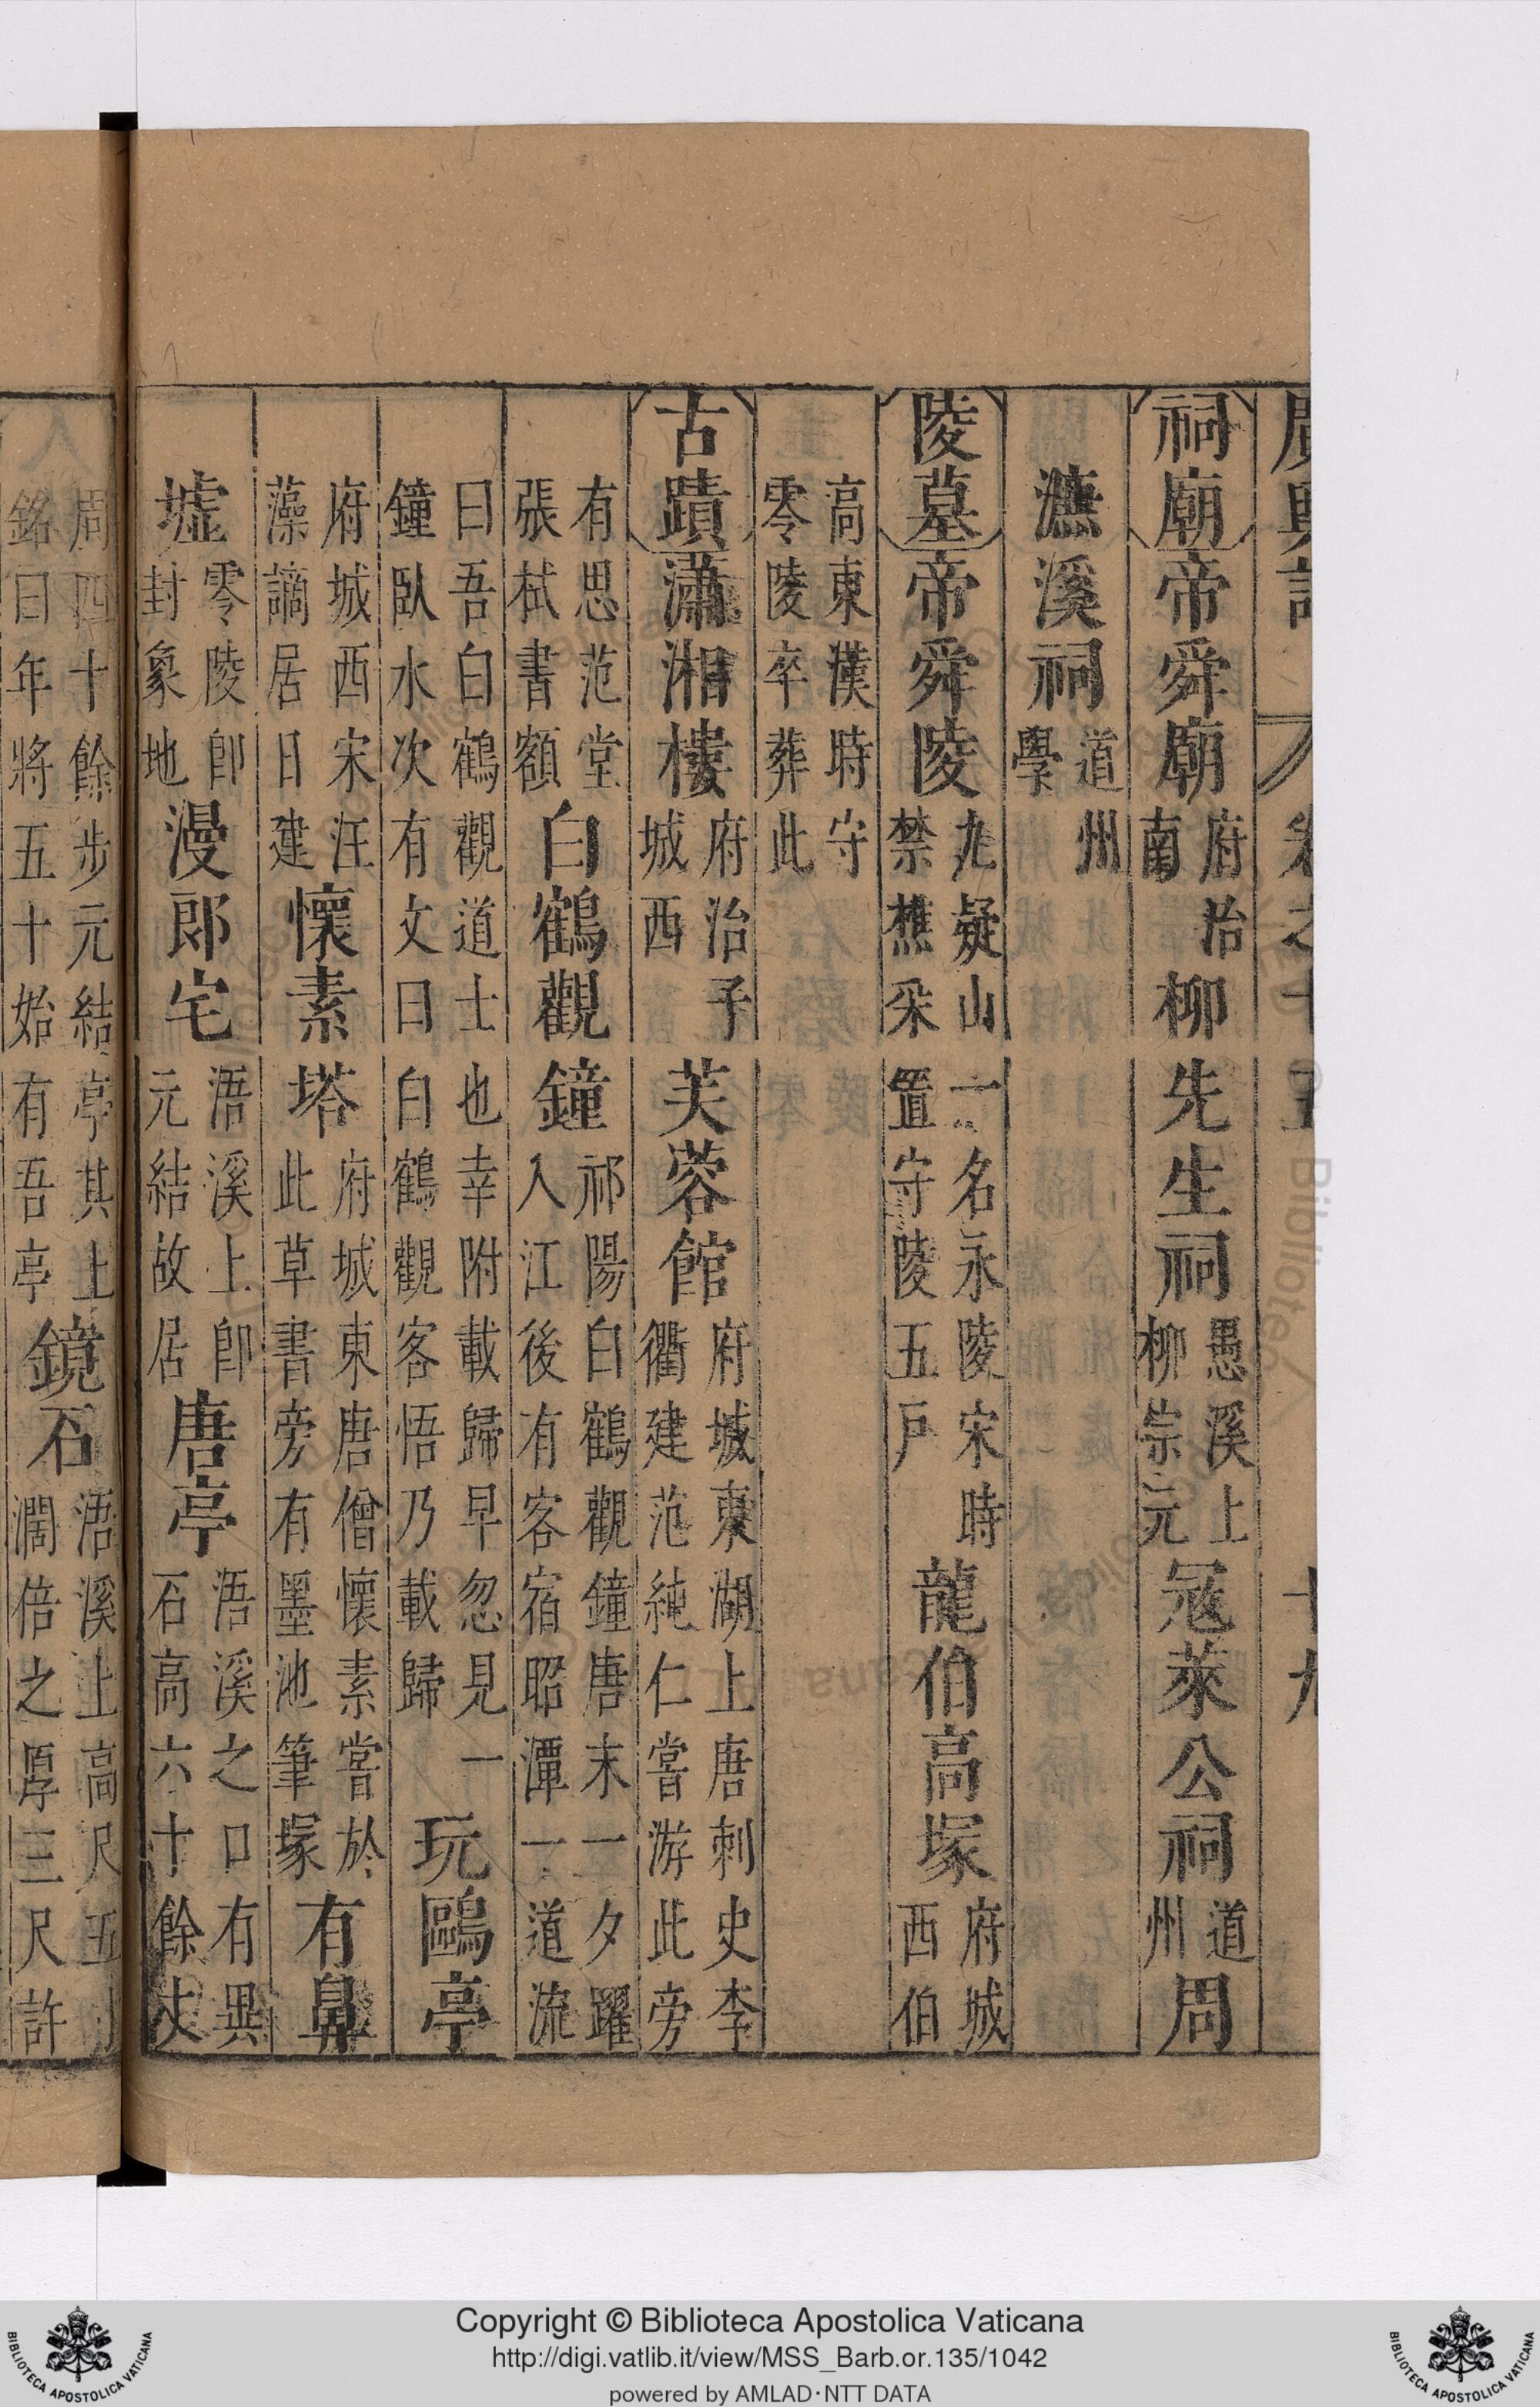 廣輿記 卷之十五 十九
祠廟帝舜廟府治南柳先生祠愚溪上柳宗元冦萊公祠道州周
濂溪祠道州學
陵墓帝舜陵九疑山一名永陵宋時禁樵采置守陵五戶龍伯高塚府城西伯
高東漢時守零陵卒葬此
古蹟瀟湘樓府治子城西芙蓉館府城東湖上唐刺史李衢建范純仁嘗游此旁
有思范堂張栻書額白鶴觀鐘祁陽白鶴觀鐘唐末一夕躍入江後有客宿昭潭一道流
曰吾白鶴觀道士也幸附載歸早忽見一鐘臥水次有文曰白鶴觀客悟乃載歸玩鷗亭
府城西宋汪藻謫居日建懷素塔府城東唐僧懷素嘗於此草書旁有墨池筆塚有鼻
墟零陵卽封象地漫郎宅浯溪上卽元結故居唐亭浯溪之口有異石高六十餘丈
周四十餘步元結亭其上銘曰年將五十始有吾亭鏡石浯溪上高尺五濶倍之厚三尺許
Copyright © Biblioteca Apostolica Vaticana
http://digi.vatlib.it/view/MSS_Barb.or.135/1042
powered by AMLAD·NTT DATA
BIBLIOTECA APOSTOLICA VATICANA
BIBLIOTECA APOSTOLICA VATICANA